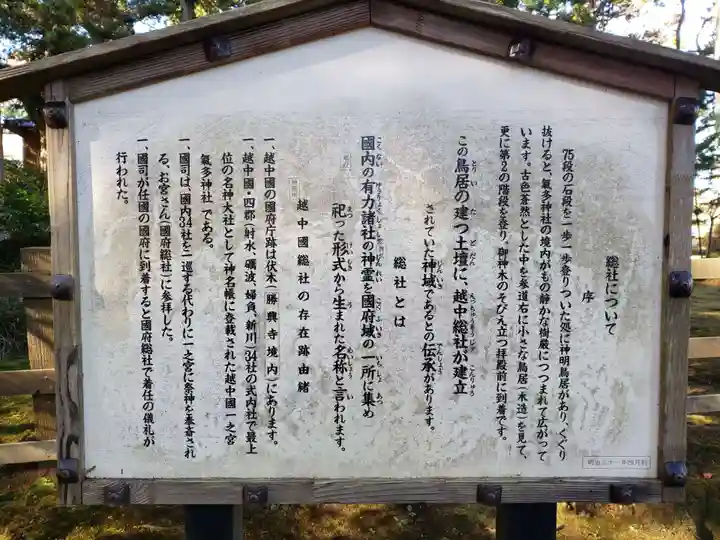 総社について
序
75段の石段を一歩一歩登りついた処に神明鳥居があり、くぐり
抜けると、氣多神社の境内がもの静かな樹厳につつまれて広がって
います。古色蒼然とした中を参道右に小さな鳥居(木造)を見て、
更に第2の階段を登り、御神木のそびえ立つ拝殿前に到着です。
この鳥居の建つ土壇に、越中総社が建立
されていた神域であるとの伝承があります。
総社とは
國内の有力諸社の神霊を國府域の一所に集め
祀った形式から生まれた名称と言われます。
越中國総社の存在跡由緒
一、越中國の國府庁跡は伏木(勝興寺境内)にあります。
一、越中國・四郡(射水、礪波、婦負、新川)34社の式内社で最上
位の名神大社として神名帳に登載された越中國一之宮
氣多神社である。
一、國司は、國内34社を二巡する代わりに一之宮に奉神を奉斎され
る、お宮さん(國府総社)に参拝した。
一、國司が任國の國府に到着すると國府総社で着任の儀礼が
行われた。